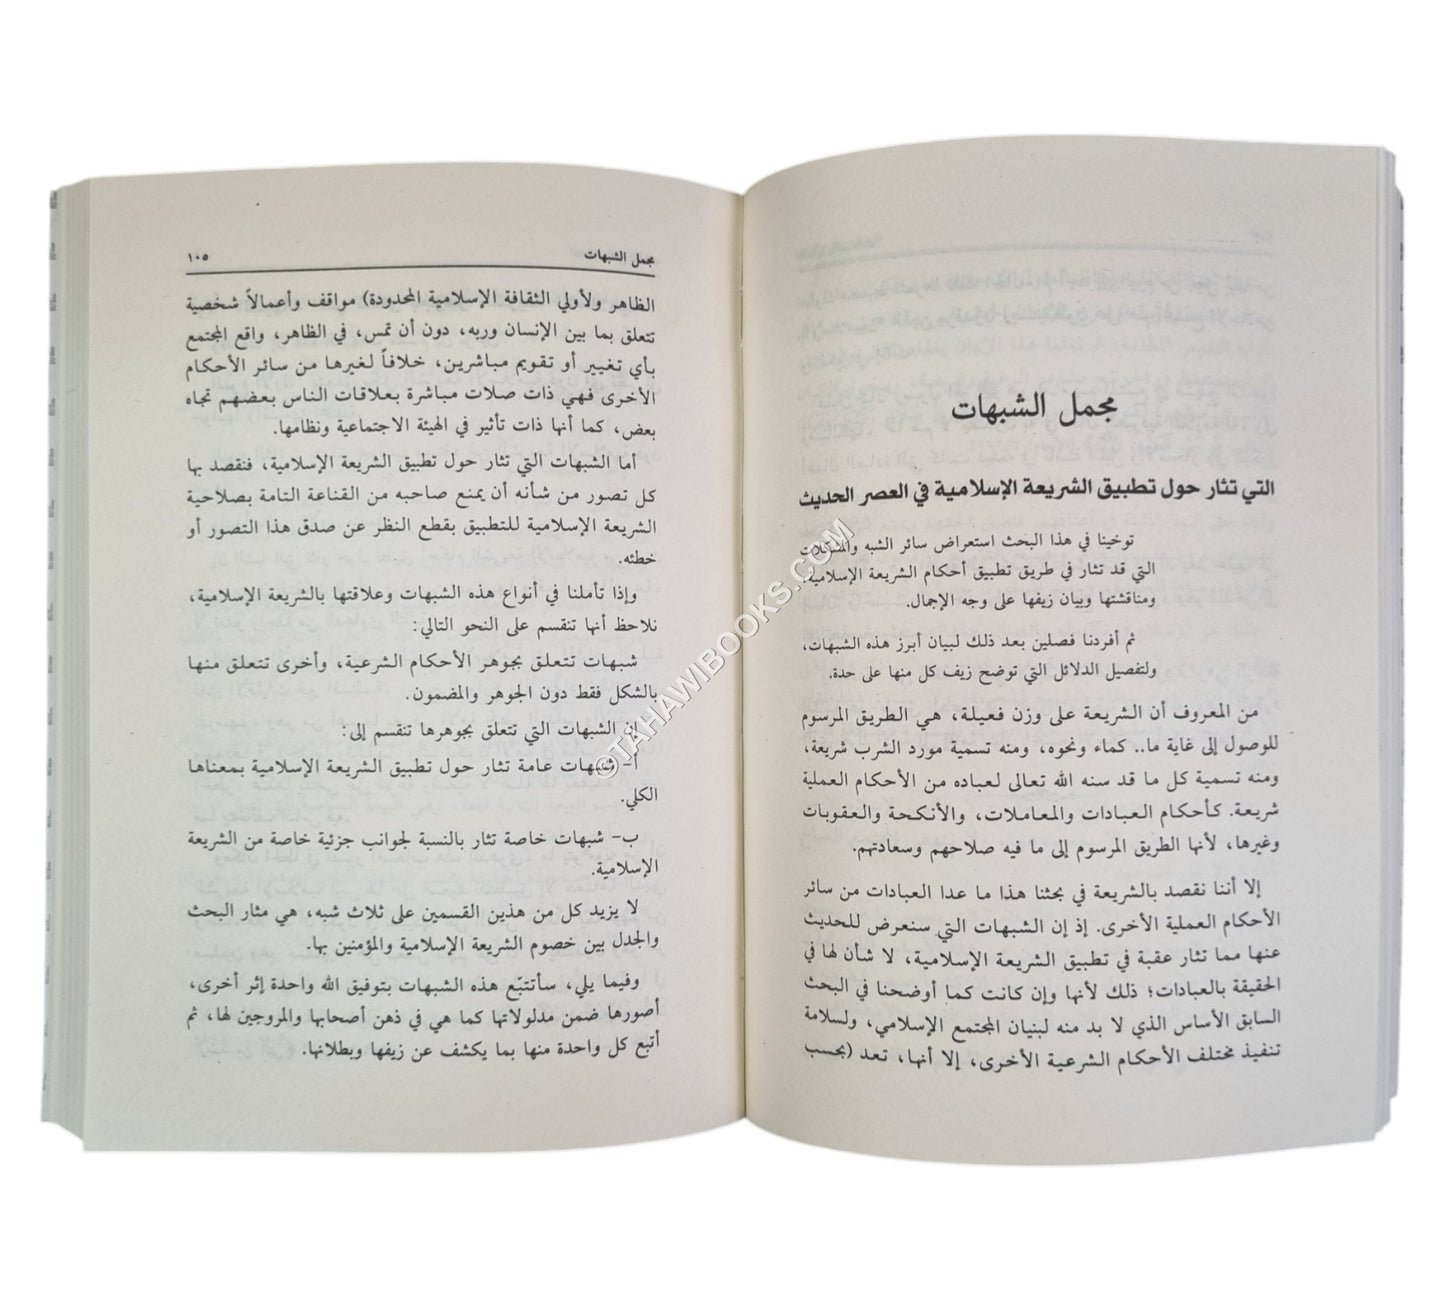 مجمل الشبهات
التي تثار حول تطبيق الشريعة الإسلامية في العصر الحديث
توخينا في هذا البحث استعراض سائر الشبه والمشكلات
التي قد تثار في طريق تطبيق أحكام الشريعة الإسلامية.
ومناقشتها وبيان زيفها على وجه الإجمال.
ثم أفردنا فصلين بعد ذلك لبيان أبرز هذه الشبهات،
ولتفصيل الدلائل التي توضح زيف كل منها على حدة.
من المعروف أن الشريعة على وزن فعيلة، هي الطريق المرسوم
للوصول إلى غاية ما.. كماء ونحوه، ومنه تسمية مورد الشرب شريعة،
ومنه تسمية كل ما قد سنه الله تعالى لعباده من الأحكام العملية
شريعة. كأحكام العبادات والمعاملات، والأنكحة والعقوبات
وغيرها، لأنها الطريق المرسوم إلى ما فيه صلاحهم وسعادتهم.
إلا أننا نقصد بالشريعة في بحثنا هذا ما عدا العبادات من سائر
الأحكام العملية الأخرى. إذ إن الشبهات التي سنعرض للحديث
عنها مما تثار عقبة في تطبيق الشريعة الإسلامية، لا شأن لها في
الحقيقة بالعبادات؛ ذلك لأنها وإن كانت كما أوضحنا في البحث
السابق الأساس الذي لا بد منه لبنيان المجتمع الإسلامي، ولسلامة
تنفيذ مختلف الأحكام الشرعية الأخرى، إلا أنها، تعد (بحسب
مجمل الشبهات ١٠٥
الظاهر ولأولي الثقافة الإسلامية المحدودة) مواقف وأعمالاً شخصية
تتعلق بما بين الإنسان وربه، دون أن تمس، في الظاهر، واقع المجتمع
بأي تغيير أو تقويم مباشرين، خلافاً لغيرها من سائر الأحكام
الأخرى فهي ذات صلات مباشرة بعلاقات الناس بعضهم تجاه
بعض، كما أنها ذات تأثير في الهيئة الاجتماعية ونظامها.
أما الشبهات التي تثار حول تطبيق الشريعة الإسلامية، فنقصد بها
كل تصور من شأنه أن يمنع صاحبه من القناعة التامة بصلاحية
الشريعة الإسلامية للتطبيق بقطع النظر عن صدق هذا التصور أو
خطئه.
وإذا تأملنا في أنواع هذه الشبهات وعلاقتها بالشريعة الإسلامية،
نلاحظ أنها تنقسم على النحو التالي:
شبهات تتعلق بجوهر الأحكام الشرعية، وأخرى تتعلق منها
بالشكل فقط دون الجوهر والمضمون.
إن الشبهات التي تتعلق بجوهرها تنقسم إلى:
أ- شبهات عامة تثار حول تطبيق الشريعة الإسلامية بمعناها
الكلي.
ب- شبهات خاصة تثار بالنسبة لجوانب جزئية خاصة من الشريعة
الإسلامية.
لا يزيد كل من هذين القسمين على ثلاث شبه، هي مثار البحث
والجدل بين خصوم الشريعة الإسلامية والمؤمنين بها.
وفيما يلي، سأتتبّع هذه الشبهات بتوفيق الله واحدة إثر أخرى،
أصورها ضمن مدلولاتها كما هي في ذهن أصحابها والمروجين لها، ثم
أتبع كل واحدة منها بما يكشف عن زيفها وبطلانها.
©TAHAWIBOOKS.COM